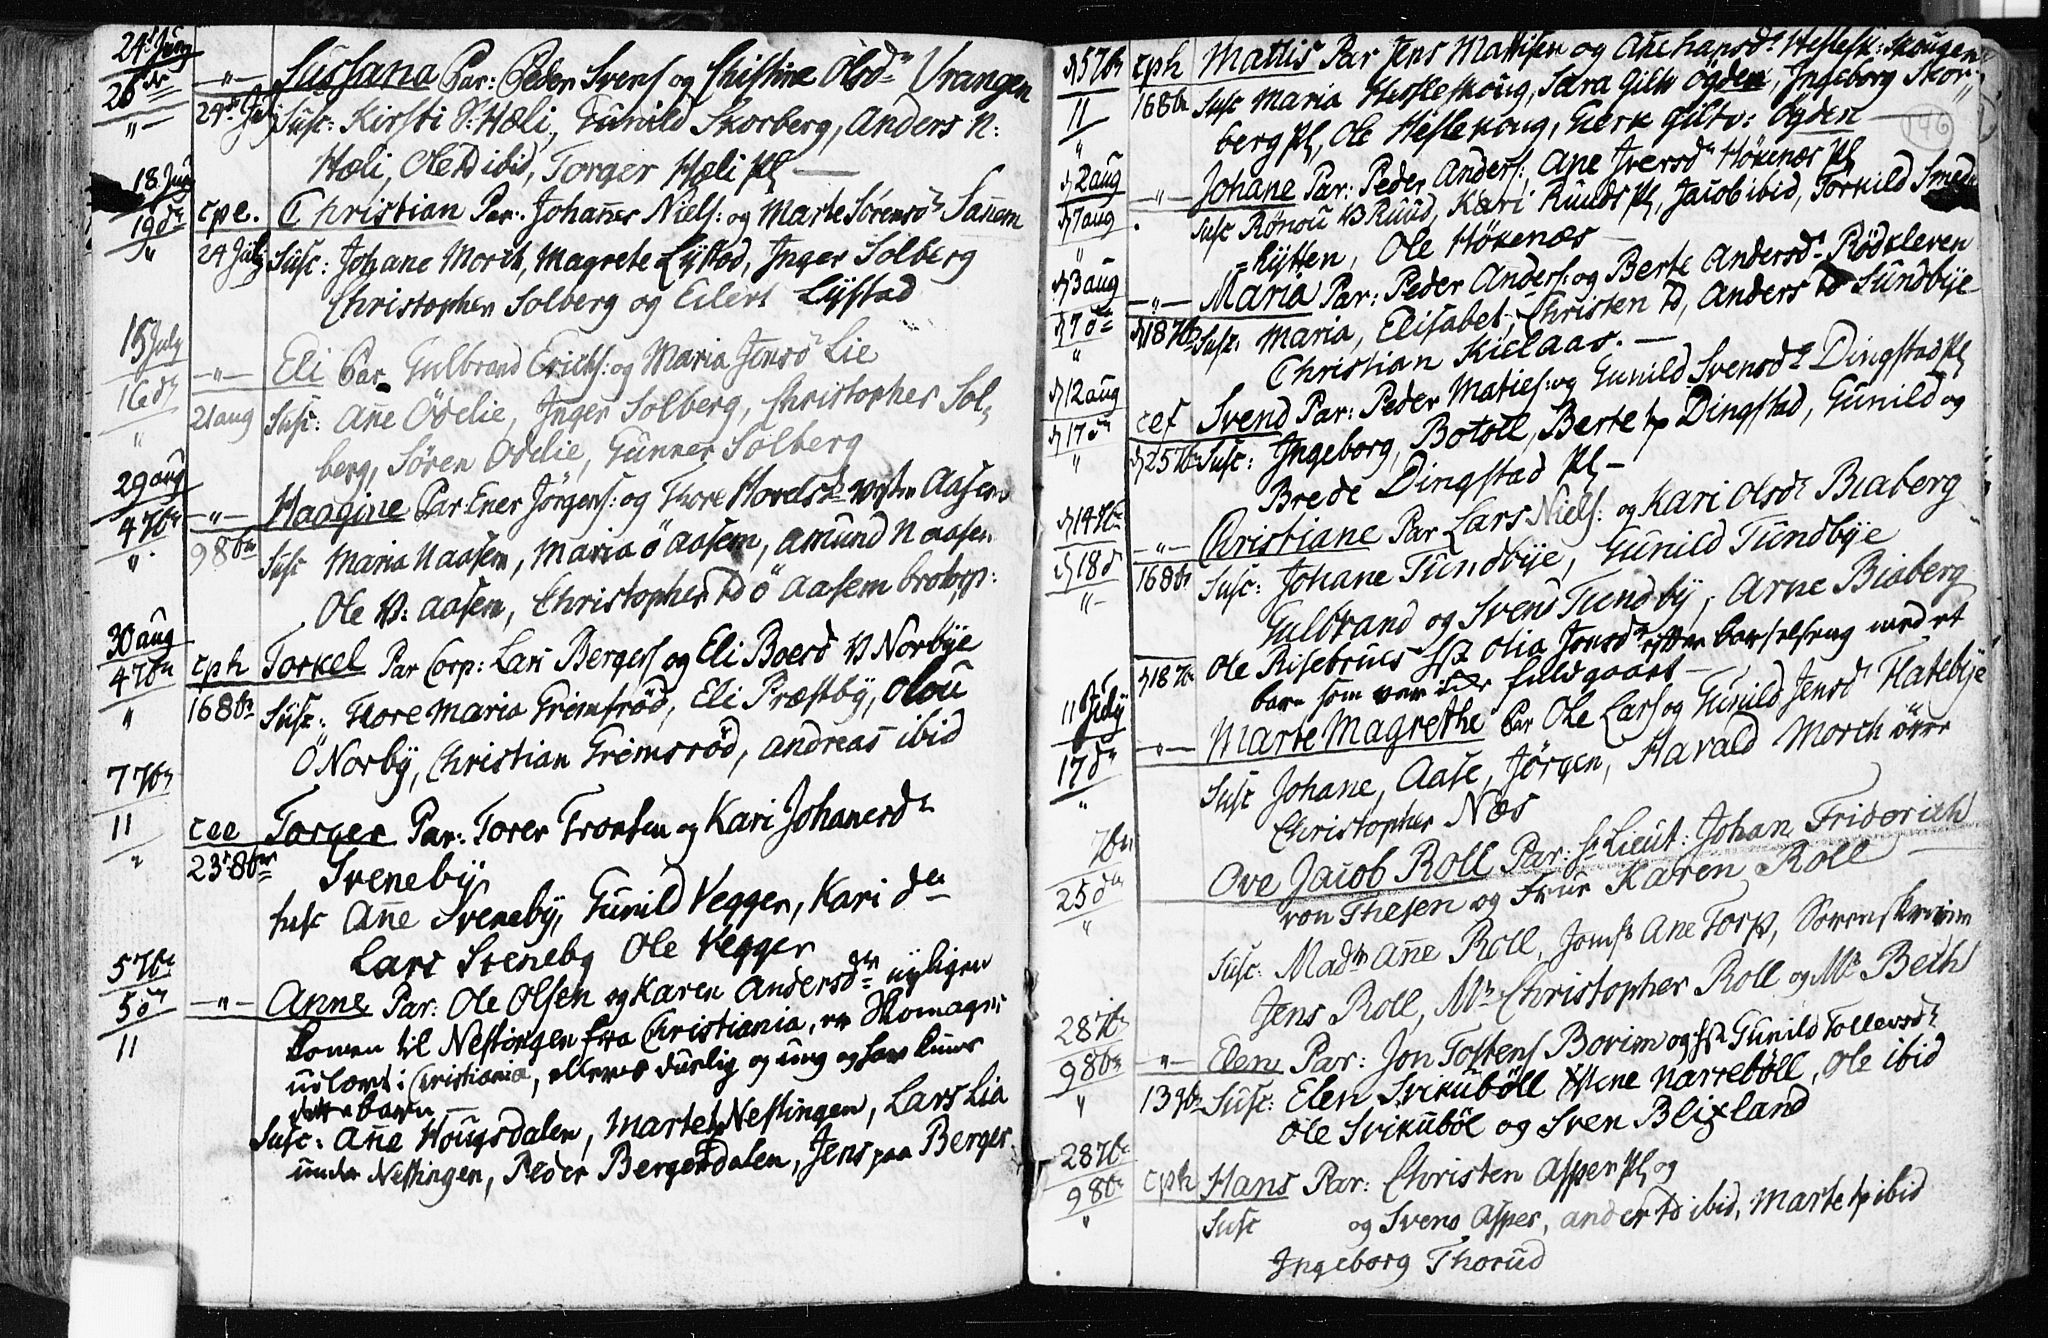 24 Juny
26 dr
"
-"- Sussana Par: Peder Svens og Christine Olsd Vrangen
24 July Susc: Kirsti S: Hæli, Gunild Skorberg, Anders N:
Hæli, Ole ibid, Torger Hæli Pl
18 Juny
19 d
"
cpe. Christian Par. Johannes Niels: og Marte Sörensd Sanem
24 July Susc: Johane Morch, Magrete Lystad, Inger Solberg
Christopher Solberg og Eilert Lystad
15 July
16 d
"
-"- Eli Par Gulbrand Erichs: og Maria Jensd Lie
21 aug Susc: Ane Ödelie, Inger Solberg, Christopher Sol
berg, Sören Odelie, Gunner Solberg
29 aug
4 7br
"
-"- Haagine Par: Ener Jörgens: og Thore Aasem
9 8br Susc Maria N aasem, Maria ö aasem, amund N aasem
Ole V: aasem, Christopher ö Aasem brotorp:
30 aug
4 7br
"
cph Torkel Par Corp: Lars Bergers og Eli Boersd V Norbye
16 8br Susc: Thore Maria Grimsröd, Eli Præstby, Olou
Ö Norby, Christian Grimsröd, andreas ibid
7 7br
11
"
cee Torger Par: Torer Tronsen og Kari Johanesd
23 8br Sveneby
susc Ane Sveneby, Gunild Vegger, Kari d
Lars Sveneby Ole Vegger
5 7br
5 d
11
-"- Anne Par: Ole Olsen og Karen Andersd nyligen
komen til Nestingen fra Christiania, er Skomager
udlært i Christiania, ellers duelig og ung og har kuns
dette barn
Susc: Ane Hougsdalen, Marte Nestingen, Lars Lia
under Nestingen, Peder Bergerdalen, Jens paa Berger
146
5 7br
11
"
cph Mattis Par Jens Mattisen og Ane hansd Heslesk: Skougen
16 8br Susc Maria Hesleskoug, Sara Ögden, Ingeborg Skor
berg Pl, Ole Hesleskoug, Ogden
2 aug
7 aug
"
-"- Johane Par: Peder Anders:, Ane Iversd Hökenæs Pl
Susc Rönou V Ruud, Kari Ruuds Pl, Jacob ibid, Torkild Smed
hytten, Ole Hökenæs
3 aug
7 d
"
-"- Maria Par: Peder Anders: og Berte Andersd Rödkleven
18 7br Susc: Maria, Elisabet, Christen, Anders Sundbye
Christian Kielaas.
12 aug
17 d
"
cef Svend Par: Peder Maties: og Gunild Svensd Dingstad Pl
25 7br Susc: Ingeborg, Botoll, Berte Dingstad, Gunild og
Brede Dingstad Pl
14 7br
18 d
"
-"- Christiane Par Lars Niels: og Kari Olsd Biaberg
16 8br Susc: Johane Tundbye, Gunild Tundbye
Gulbrand og Svend Tundby, Arne Biaberg
18 7br Ole Risebrues Olia Jonsd efter barselseng med et
barn som var fuldgaaet
11 July
17 d
"
-"- Marte Magrethe Par Ole Lars og Gunild Jensd Flatebye
Susc Johane, Aase, Jörgen, Harald Morch övre
Christopher Næs
7br
25 d
"
Ove Jacob Roll Par: Lieut: Johan Friderich
von Thesen og Frue Karen Roll
Susc: Mad Ane Roll, Jomf Ane Torp, Sorenskriver
Jens Roll, Mr Christopher Roll og Mr Beth
28 7br
9 8br
"
-"- Elen Par: Jon Tostens Borim og Gunild Tollevsd
13 9br Susc: Elen Svikuböll Mene Narreböll, Ole ibid
Ole Svikuböl og Sven Blixland
28 7br
9 8br
"
cph Hans Par: Christen Asper Pl og
Susc og Svend Asper, ander ibid, Marte ibid
Ingeborg Thorud